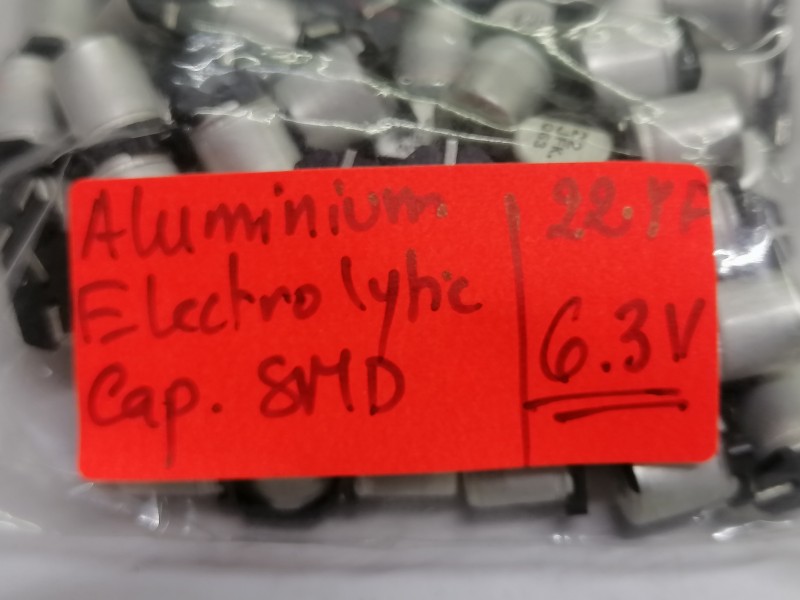 Aluminium
Electrolytic
Cap. SMD
22µF
6.3V